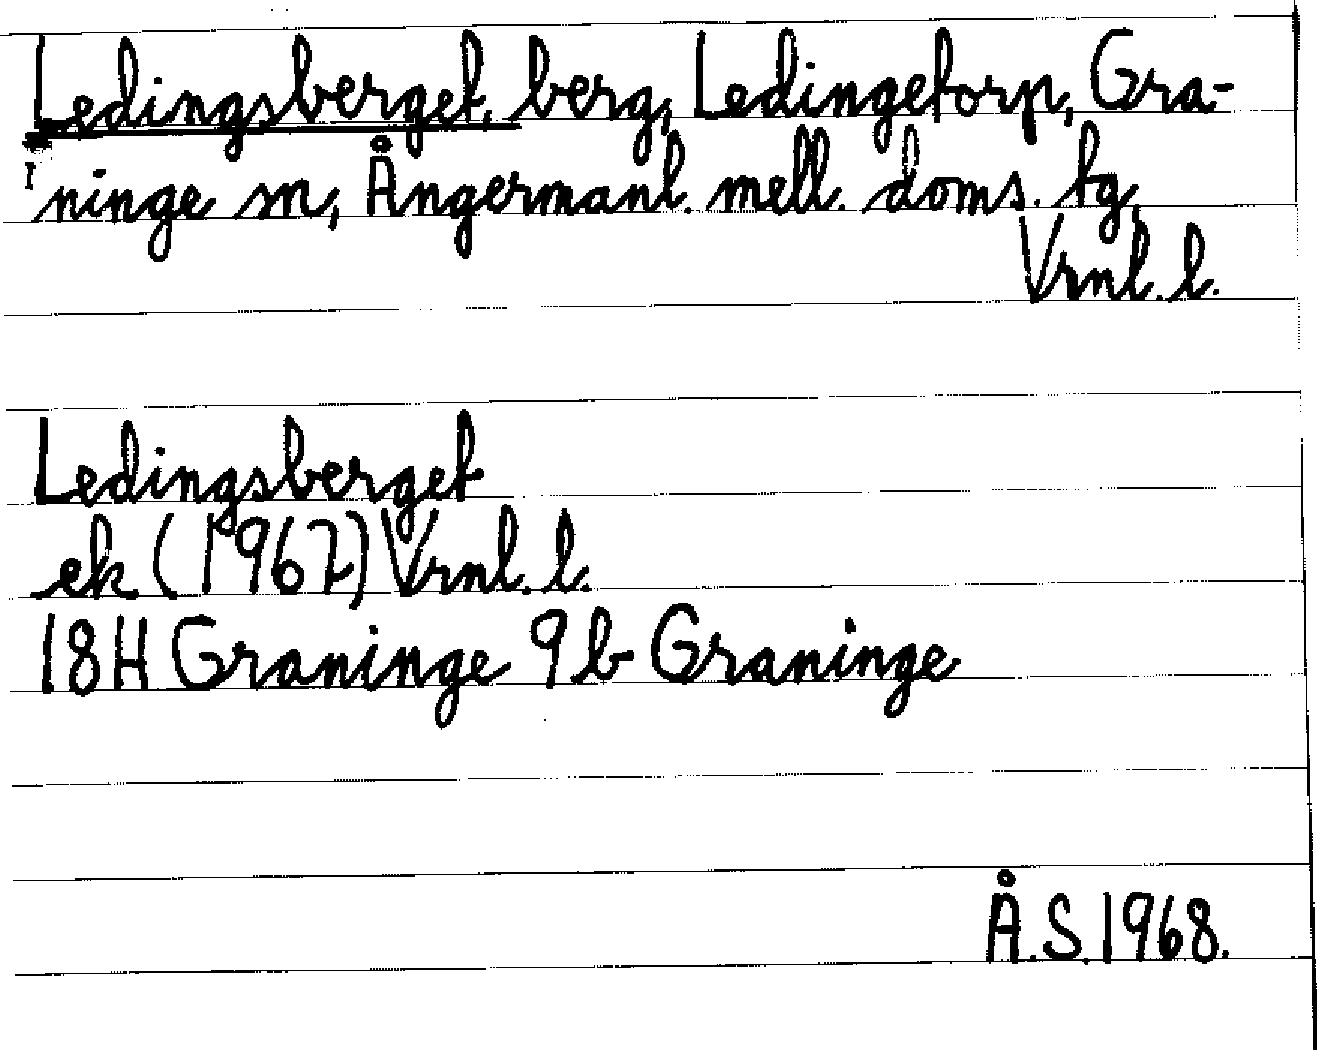 Ledingsberget, berg, Ledingetorp, Gra-
ninge sn, Ångermanl. mell. doms. tg,
Vrnl. l.
Ledingsberget
ek (1967) Vrnl. l.
18H Graninge 9 b Graninge
Å.S. 1968.